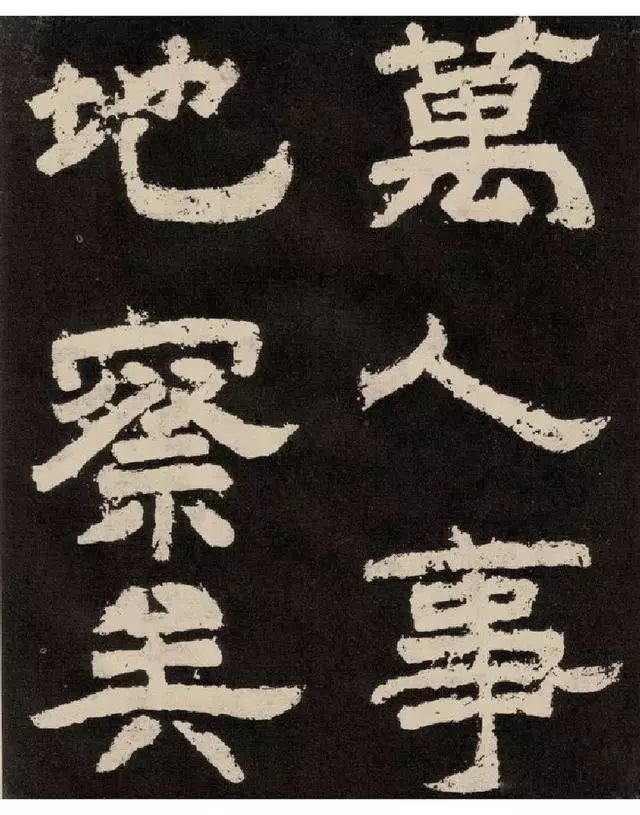 萬人事
地察